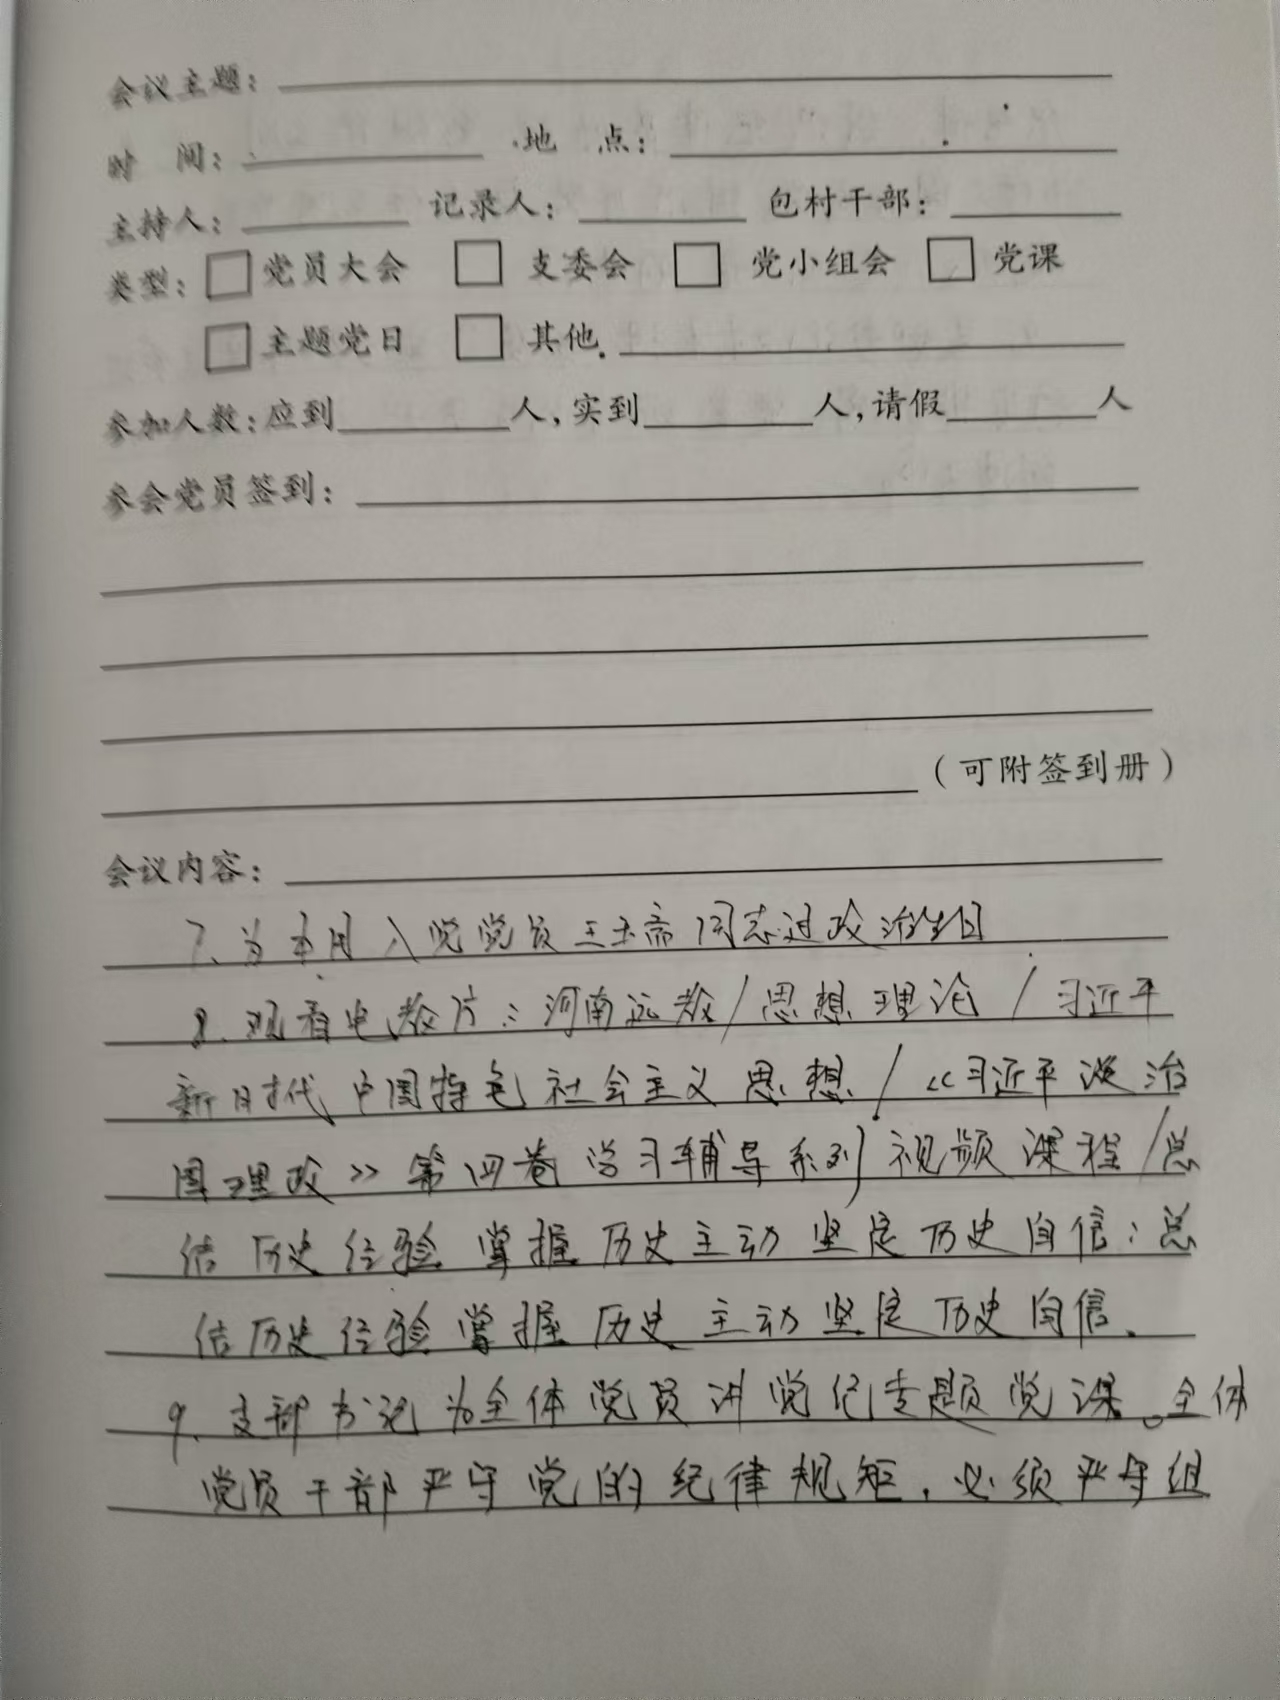 会议主题：
时 间： 地 点：
主持人： 记录人： 包村干部：
类型：□党员大会 □ 支委会 □ 党小组会 □ 党课
□主题党日 □ 其他
参加人数：应到 人，实到 人，请假 人
参会党员签到：
（可附签到册）
会议内容：
7、为本月入党党员王士斋同志过政治生日
8、观看电教片：河南远教/思想理论/习近平
新时代中国特色社会主义思想/《习近平谈治
国理政》第四卷学习辅导系列视频课程/总
结历史经验掌握历史主动坚定历史自信：总
结历史经验掌握历史主动坚定历史自信。
9、支部书记为全体党员讲党纪专题党课。全体
党员干部严守党的纪律规矩，必须严守组